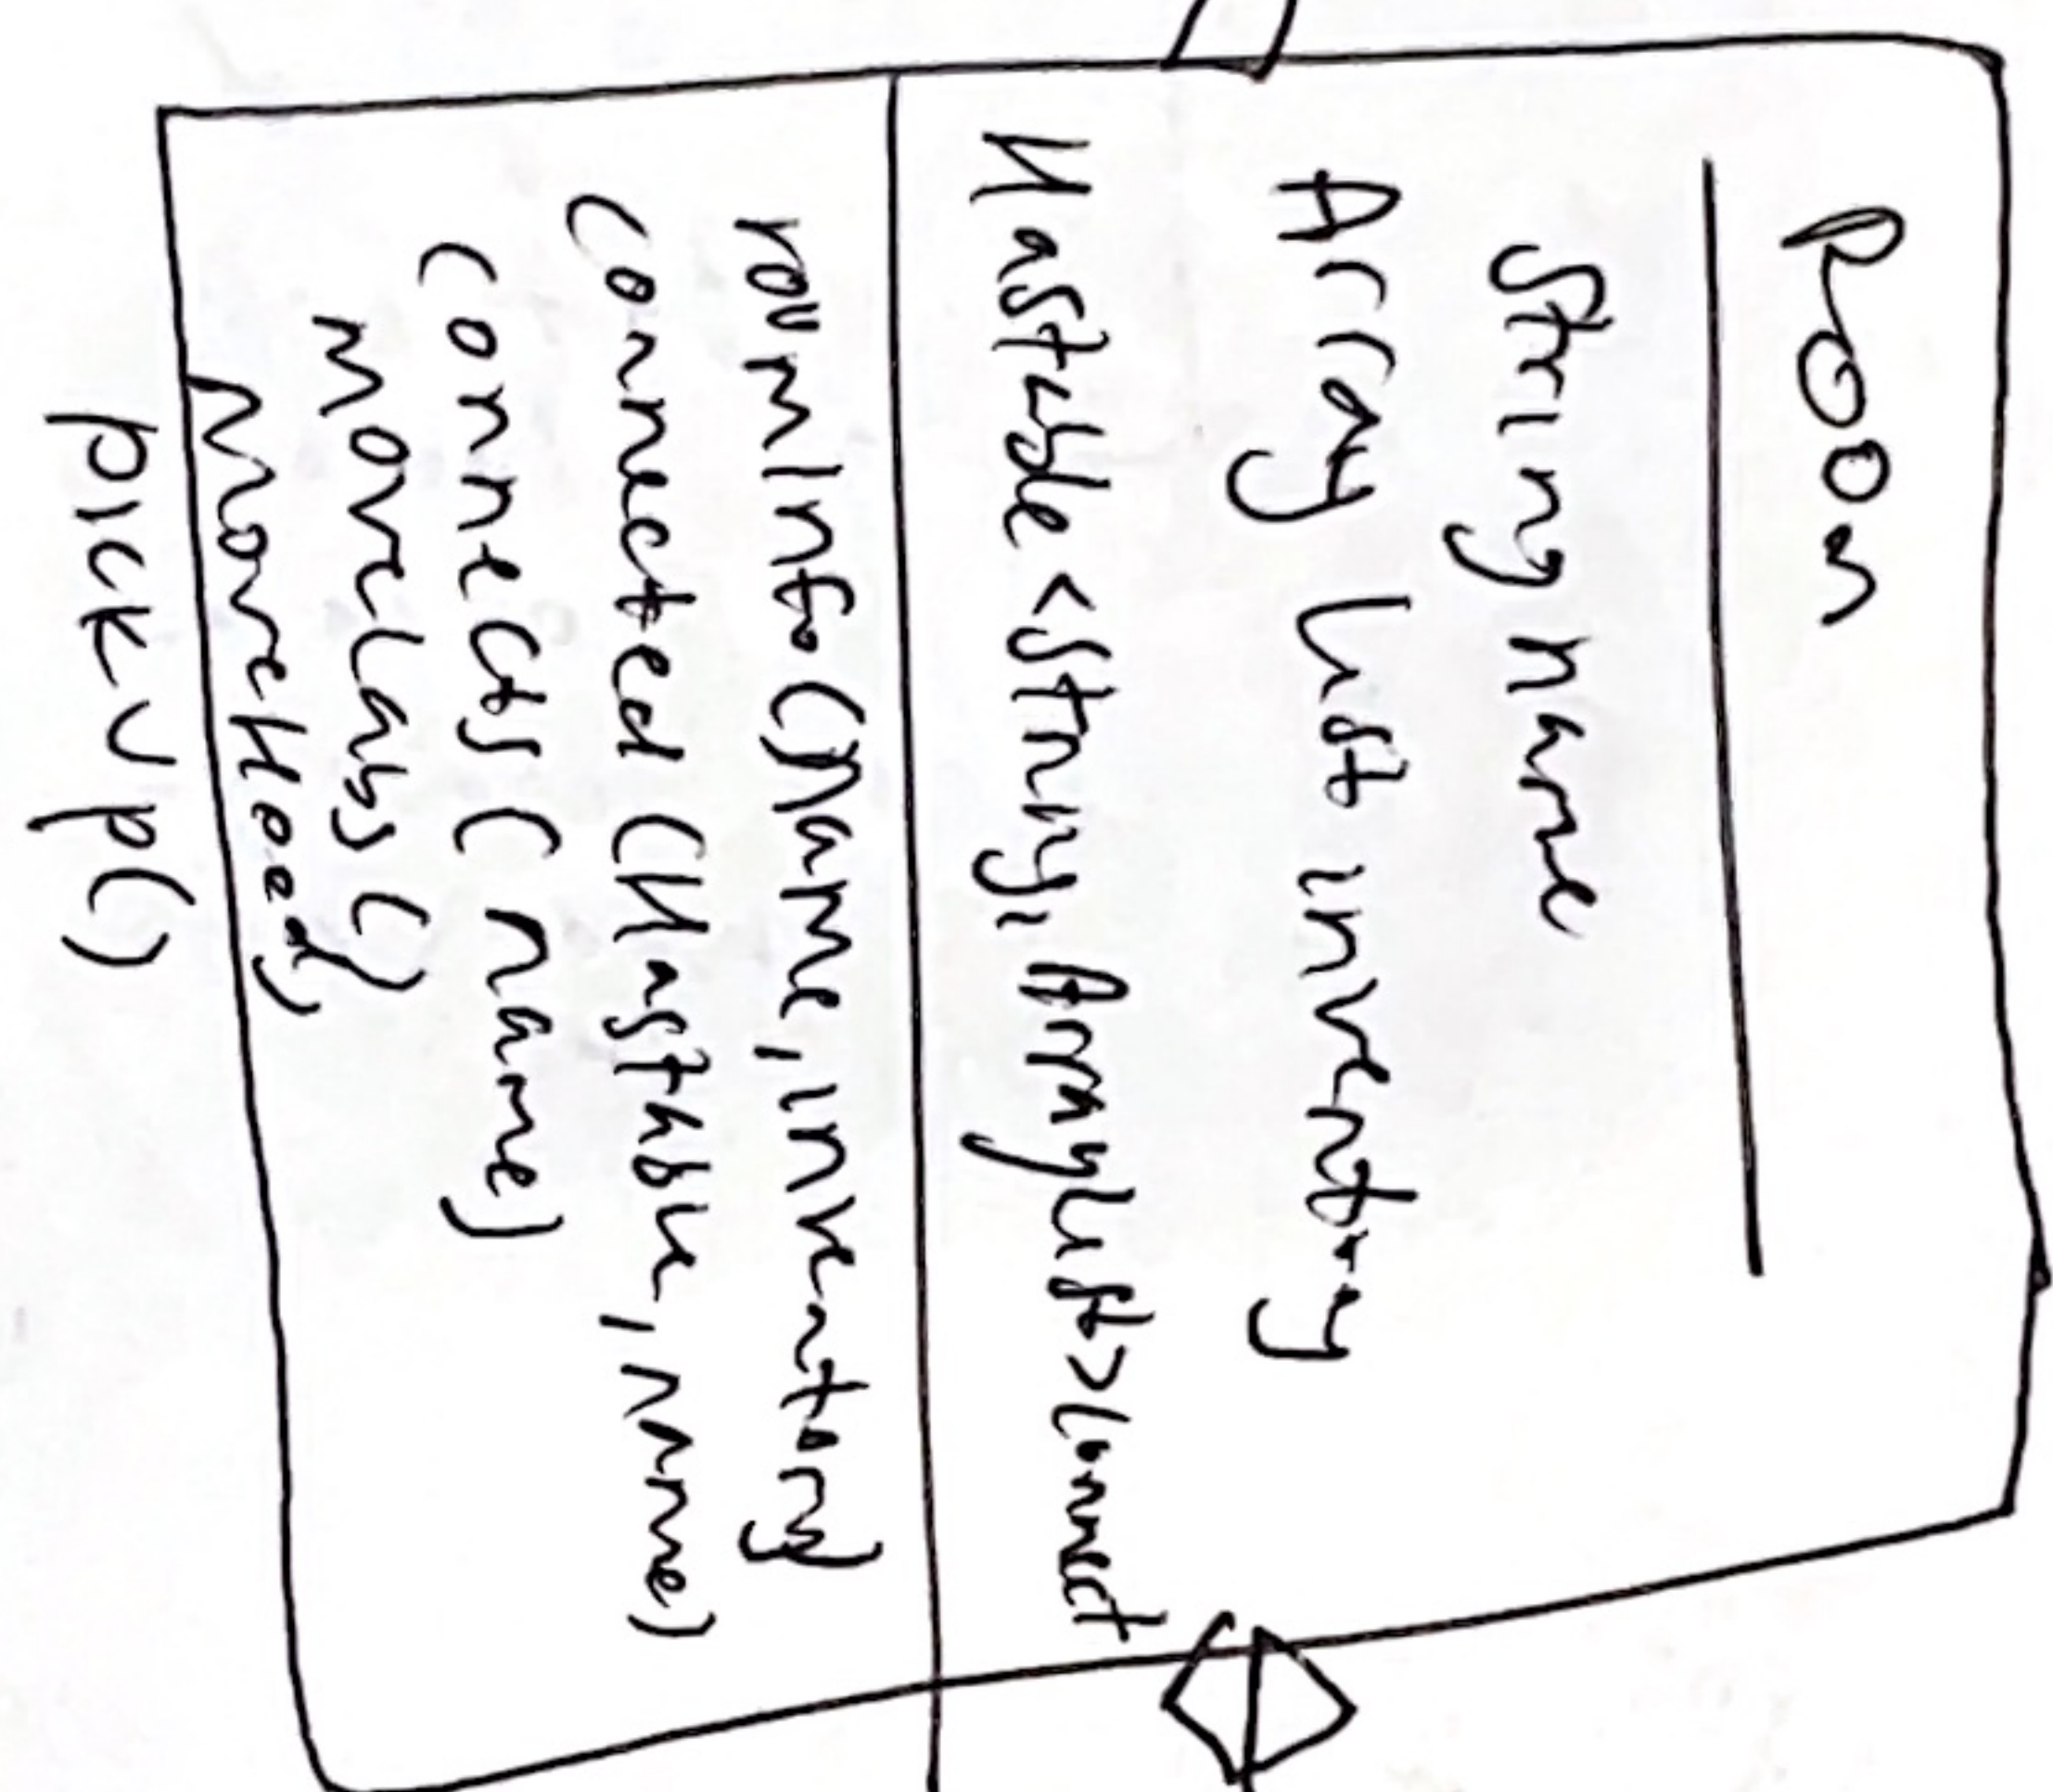 Room
String Name
Array List inventory
Hastable <String, ArrayList> Connect
roomInfo (Name, inventory)
Connected (Hastable, name)
Connects (name)
moveLabs ()
MoveHeed)
PickUp()